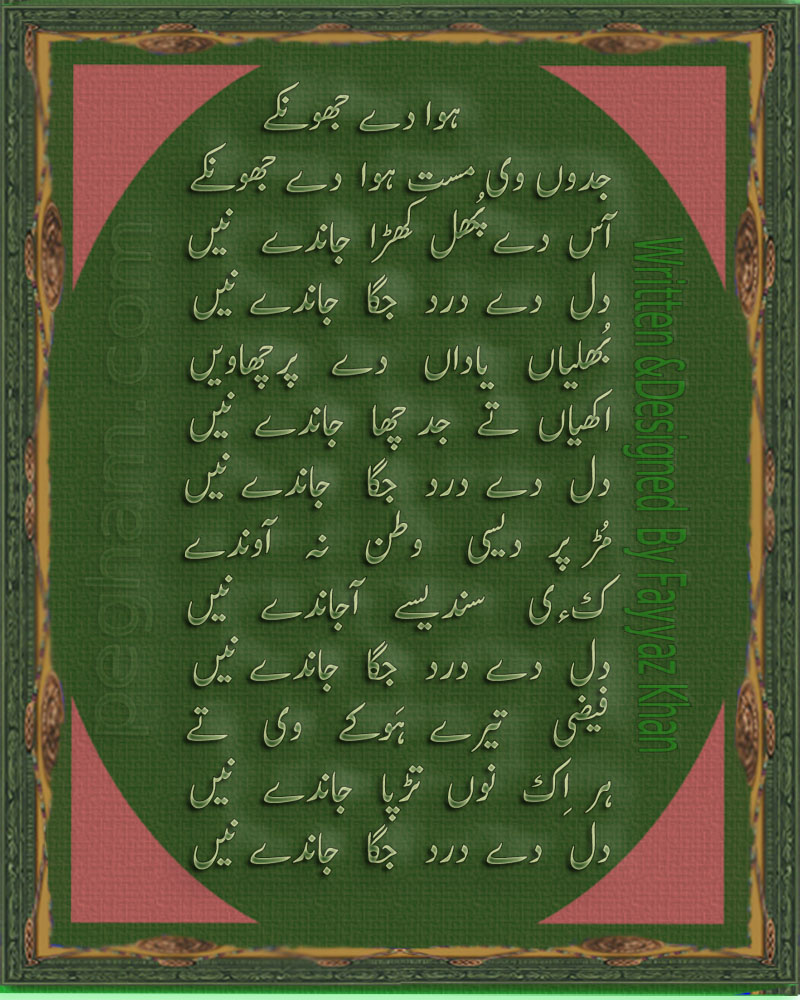 ہوا دے جھونکے
جدوں وی مست ہوا دے جھونکے
آس دے پُھل کھڑا جاندے نیں
دل دے درد جگا جاندے نیں
بُھلیاں یاداں دے پرچھاویں
اکھیاں تے جد چھا جاندے نیں
دل دے درد جگا جاندے نیں
مُڑ پر دیسی وطن نہ آوندے
کءی سندیسے آجاندے نیں
دل دے درد جگا جاندے نیں
فیضی تیرے ہَوکے وی تے
ہر اِک نوں تڑپا جاندے نیں
دل دے درد جگا جاندے نیں
Written &Designed By Fayyaz Khan
pegham.com